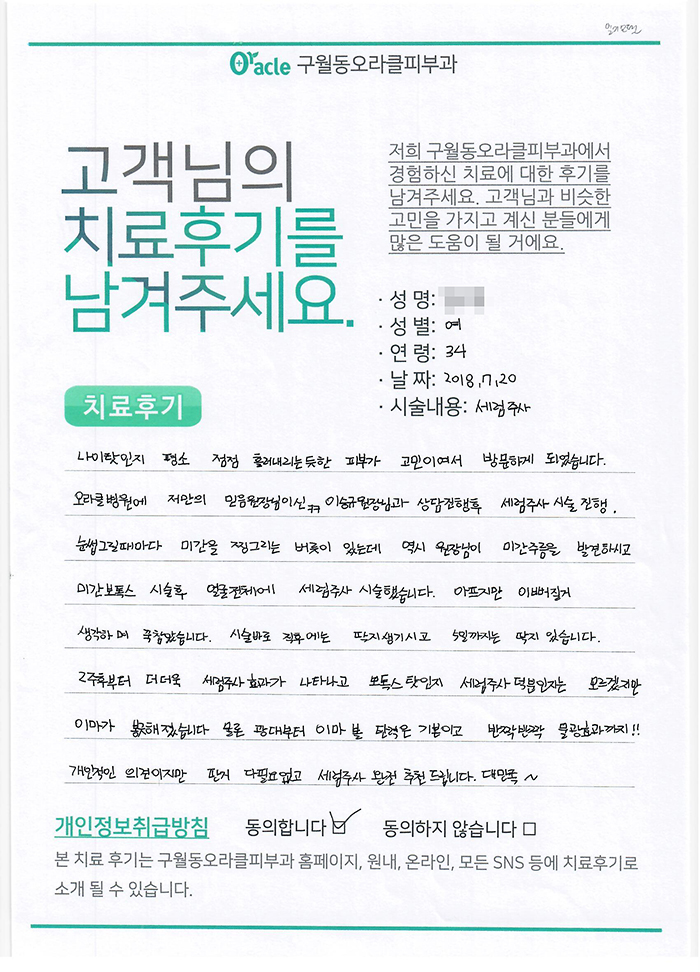 Oracle 구월동오라클피부과
고객님의
치료후기를
남겨주세요.
저희 구월동오라클피부과에서
경험하신 치료에 대한 후기를
남겨주세요. 고객님과 비슷한
고민을 가지고 계신 분들에게
많은 도움이 될 거에요.
· 성 명:
· 성 별: 여
· 연 령: 34
· 날 짜: 2018.7.20
· 시술내용: 세럼주사
치료후기
나이탓인지 평소 점점 흘러내리는듯한 피부가 고민이여서 방문하게 되었습니다.
오라클병원에 저만의 믿음원장님이신ㅋㅋ 이승규원장님과 상담진행후 세럼주사 시술 진행.
눈썹그릴때마다 미간을 찡그리는 버릇이 있는데 역시 원장님이 미간주름을 발견하시고
미간보톡스 시술후 얼굴전체에 세럼주사 시술했습니다. 아프지만 이뻐질거
생각하며 꾹참았습니다. 시술바로 직후에는 딱지생기시고 5일까지는 딱지 있습니다.
2주후부터 더더욱 세럼주사효과가 나타나고 보톡스 탓인지 세럼주사 덕분인지는 모르겠지만
이마가 봉긋해졌습니다 물론 광대부터 이마 볼 탄력은 기본이고 반짝반짝 물광효과까지!!
개인적인 의견이지만 딴거 다필요없고 세럼주사 완전 추천 드립니다. 대만족~
개인정보취급방침 동의합니다 ☑ 동의하지 않습니다 □
본 치료 후기는 구월동오라클피부과 홈페이지, 원내, 온라인, 모든 SNS 등에 치료후기로
소개 될 수 있습니다.